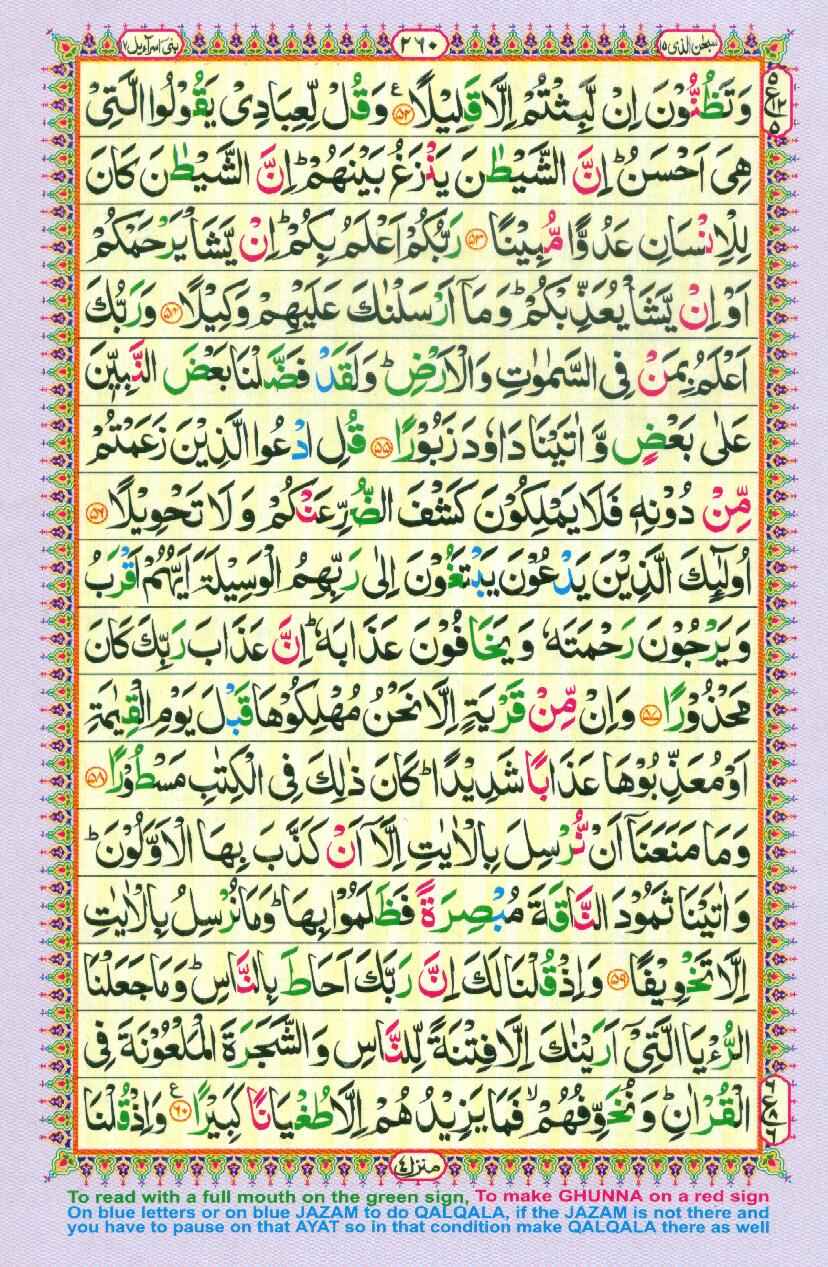 سبحٰن الذی ۱۵
۲۶۰
بنی اسرآءیل ۱۷
وَتَظُنُّوْنَ اِنْ لَّبِثْتُمْ اِلَّا قَلِیْلًا ﴿۵۲﴾ ع وَقُلْ لِّعِبَادِیْ یَقُوْلُوا الَّتِیْ
هِیَ اَحْسَنُ ؕ اِنَّ الشَّیْطٰنَ یَنْزَغُ بَیْنَهُمْ ؕ اِنَّ الشَّیْطٰنَ كَانَ
لِلْاِنْسَانِ عَدُوًّا مُّبِیْنًا ﴿۵۳﴾ رَبُّكُمْ اَعْلَمُ بِكُمْ ؕ اِنْ یَّشَاْ یَرْحَمْكُمْ
اَوْ اِنْ یَّشَاْ یُعَذِّبْكُمْ ؕ وَمَاۤ اَرْسَلْنٰكَ عَلَیْهِمْ وَكِیْلًا ﴿۵۴﴾ وَرَبُّكَ
اَعْلَمُ بِمَنْ فِی السَّمٰوٰتِ وَالْاَرْضِ ؕ وَلَقَدْ فَضَّلْنَا بَعْضَ النَّبِیّٖنَ
عَلٰی بَعْضٍ وَّ اٰتَیْنَا دَاوٗدَ زَبُوْرًا ﴿۵۵﴾ قُلِ ادْعُوا الَّذِیْنَ زَعَمْتُمْ
مِّنْ دُوْنِهٖ فَلَا یَمْلِكُوْنَ كَشْفَ الضُّرِّ عَنْكُمْ وَ لَا تَحْوِیْلًا ﴿۵۶﴾
اُولٰٓىِٕكَ الَّذِیْنَ یَدْعُوْنَ یَبْتَغُوْنَ اِلٰی رَبِّهِمُ الْوَسِیْلَةَ اَیُّهُمْ اَقْرَبُ
وَیَرْجُوْنَ رَحْمَتَهٗ وَیَخَافُوْنَ عَذَابَهٗ ؕ اِنَّ عَذَابَ رَبِّكَ كَانَ
مَحْذُوْرًا ﴿۵۷﴾ وَاِنْ مِّنْ قَرْیَةٍ اِلَّا نَحْنُ مُهْلِكُوْهَا قَبْلَ یَوْمِ الْقِیٰمَةِ
اَوْ مُعَذِّبُوْهَا عَذَابًا شَدِیْدًا ؕ كَانَ ذٰلِكَ فِی الْكِتٰبِ مَسْطُوْرًا ﴿۵۸﴾
وَمَا مَنَعَنَاۤ اَنْ نُّرْسِلَ بِالْاٰیٰتِ اِلَّاۤ اَنْ كَذَّبَ بِهَا الْاَوَّلُوْنَ ؕ
وَ اٰتَیْنَا ثَمُوْدَ النَّاقَةَ مُبْصِرَةً فَظَلَمُوْا بِهَا ؕ وَمَا نُرْسِلُ بِالْاٰیٰتِ
اِلَّا تَخْوِیْفًا ﴿۵۹﴾ وَاِذْ قُلْنَا لَكَ اِنَّ رَبَّكَ اَحَاطَ بِالنَّاسِ ؕ وَمَا جَعَلْنَا
الرُّءْیَا الَّتِیْۤ اَرَیْنٰكَ اِلَّا فِتْنَةً لِّلنَّاسِ وَ الشَّجَرَةَ الْمَلْعُوْنَةَ فِی
الْقُرْاٰنِ ؕ وَ نُخَوِّفُهُمْ ۙ فَمَا یَزِیْدُهُمْ اِلَّا طُغْیَانًا كَبِیْرًا ﴿۶۰﴾ ع وَاِذْ قُلْنَا
منزل ۴
To read with a full mouth on the green sign, To make GHUNNA on a red sign
On blue letters or on blue JAZAM to do QALQALA, if the JAZAM is not there and
you have to pause on that AYAT so in that condition make QALQALA there as well